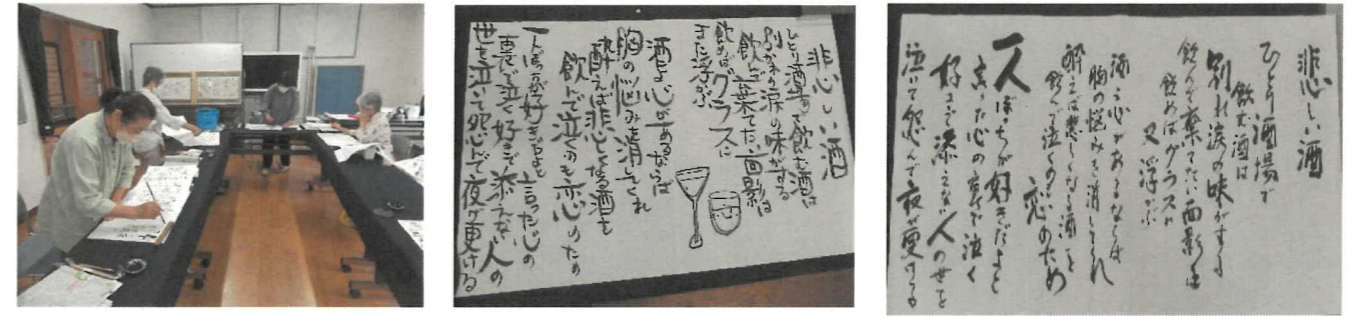 悲しい酒
ひとり酒場で飲む酒は
別れ涙の味がする
飲んで棄てたい面影は
飲めばグラスに
また浮かぶ
酒よ心があるならば
胸の悩みを消してくれ
酔えば悲しくなる酒を
飲んで泣くのも恋のため
一人ぼっちが好きだよと言った心の
裏で泣く好きで添えない人の
世を泣いて怨んで夜が更ける
悲しい酒
ひとり酒場で
飲む酒は
別れ涙の味がする
飲んで棄てたい面影は
飲めばグラスに
又浮かぶ
酒よ心があるならば
胸の悩みを消してくれ
酔えば悲しくなる酒を
飲んで泣くのも恋のため
一人ぼっちが好きだよと
言った心の裏で泣く
好きで添えない人の世を
泣いて怨んで夜が更ける